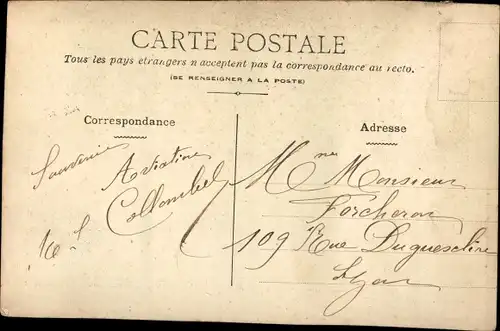 CARTE POSTALE
Tous les pays étrangers n'acceptent pas la correspondance au recto.
(SE RENSEIGNER A LA POSTE)
Correspondance
Adresse
Souvenir
Aviation
Monsieur
Forcheron
109 Rue Duguesclin
Lyon